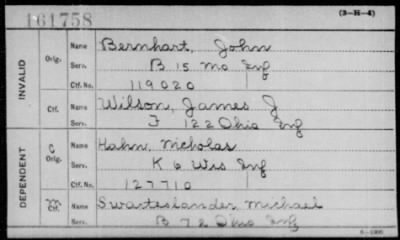 161758
(3-H-4)
INVALID
Orig.
Name Bernhart, John
Serv. B 15 Mo Inf
Ctf. No. 119020
Ctf.
Name Wilson, James J
Serv. F 122 Ohio Inf
DEPENDENT
C
Orig.
Name Hahn, Nicholas
Serv. K 6 Wis Inf
Ctf. No. 127710
Ctf.
Name Swarteslander Michael
Serv. B 72 Ohio Inf
6-1306